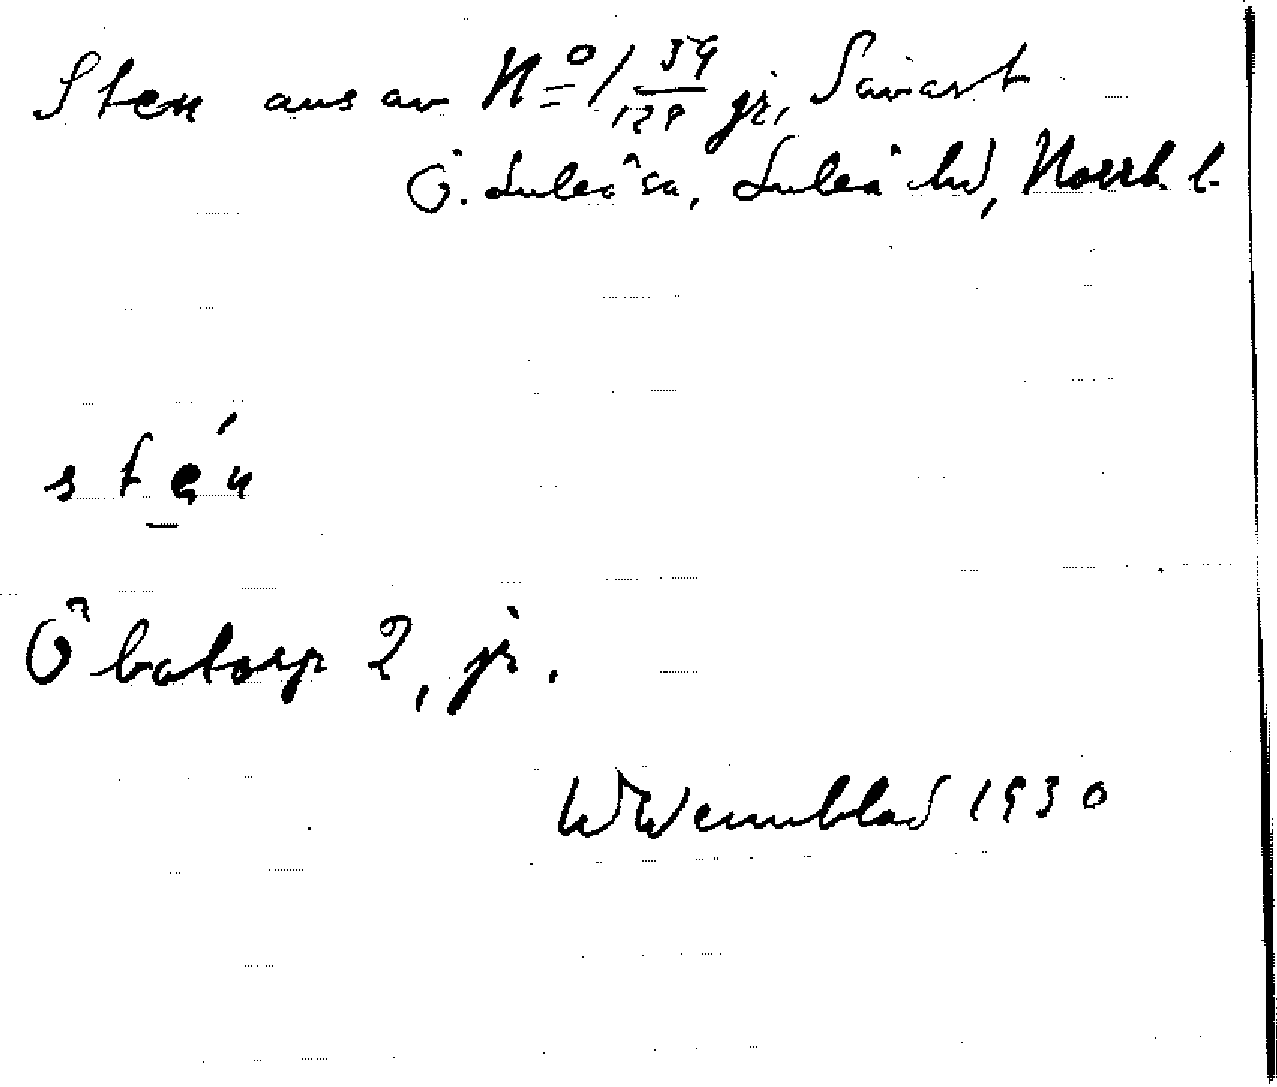 Sten aus av Nº 1 59/128 jr, Sävast
Ö. Luleå sn, Luleå hd, Norrb. l.
stęń
Öbatorp 2, jr.
W Wennblad 1930